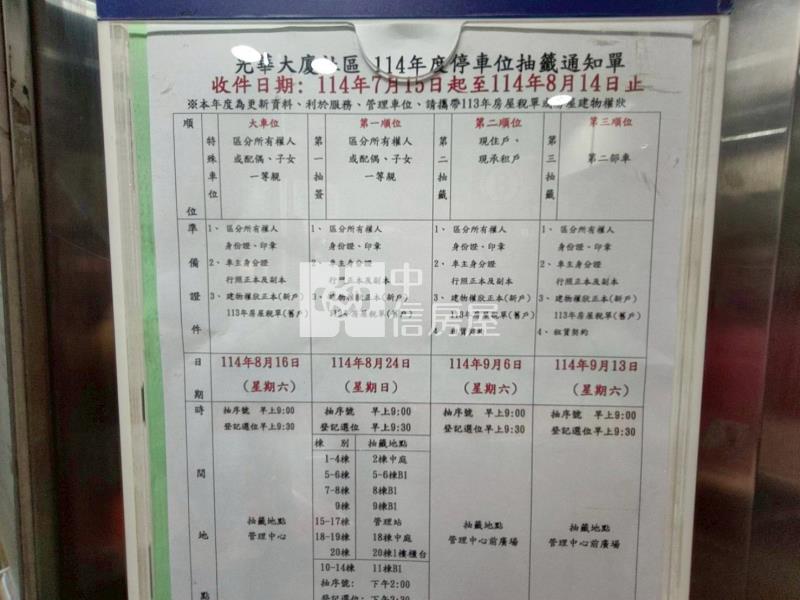 光華大廈社區 114年度停車位抽籤通知單
收件日期: 114年7月15日起至114年8月14日止
※本年度為更新資料、利於服務、管理車位、請攜帶113年房屋稅單或房屋建物權狀
順位
特殊車位
大車位
區分所有權人
或配偶、子女
一等親
第一抽簽
第一順位
區分所有權人
或配偶、子女
一等親
第二抽籤
第二順位
現住戶、
現承租戶
第三抽籤
第三順位
第二部車
準備證件
1、 區分所有權人
身份證、印章
2、 車主身分證
行照正本及副本
3、 建物權狀正本(新戶)
113年房屋稅單(舊戶)
1、 區分所有權人
身份證、印章
2、 車主身分證
行照正本及副本
3、 建物權狀正本(新戶)
113年房屋稅單(舊戶)
1、 區分所有權人
身份證、印章
2、 車主身分證
行照正本及副本
3、 建物權狀正本(新戶)
113年房屋稅單(舊戶)
4 租賃契約
1、 區分所有權人
身份證、印章
2、 車主身分證
行照正本及副本
3、 建物權狀正本(新戶)
113年房屋稅單(舊戶)
4、 租賃契約
日期
114年8月16日
(星期六)
114年8月24日
(星期日)
114年9月6日
(星期六)
114年9月13日
(星期六)
時間地點
抽序號 早上9:00
登記選位早上9:30
抽籤地點
管理中心
抽序號 早上9:00
登記選位 早上9:30
棟 別 抽籤地點
1-4棟 2棟中庭
5-6棟 5-6棟B1
7-8棟 8棟B1
9棟 9棟B1
15-17棟 管理站
18-19棟 18棟中庭
20棟 20棟1樓櫃台
10-14棟 11棟B1
抽序號: 下午2:00
登記選位: 下午2:30
抽序號 早上9:00
登記選位早上9:30
抽籤地點
管理中心前廣場
抽序號 早上9:00
登記選位早上9:30
抽籤地點
管理中心前廣場
中信房屋